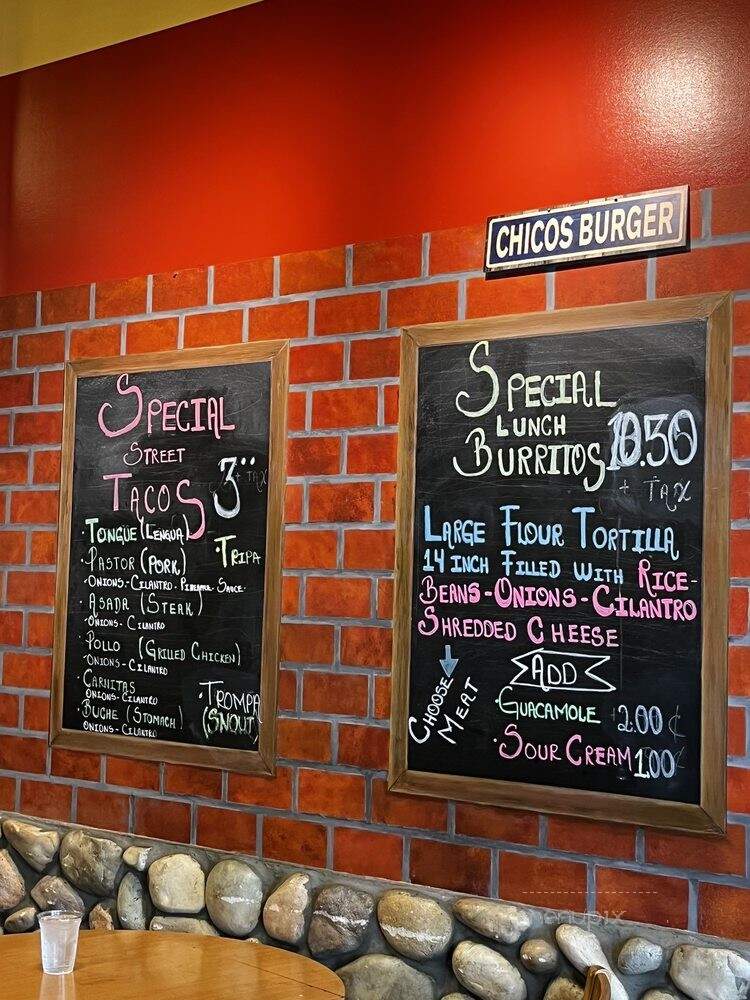 CHICOS BURGER
SPECIAL
STREET
TACOS 3" + TAX
·TONGUE (LENGUA)
·TRIPA
·PASTOR (PORK)
·ONIONS-CILANTRO-PINEAPPLE-SAUCE-
·ASADA (STEAK)
·ONIONS-CILANTRO
·POLLO (GRILLED CHICKEN)
·ONIONS-CILANTRO
·CARNITAS
ONIONS-CILANTRO
·BUCHE (STOMACH)
ONIONS-CILANTRO
·TROMPA
(SNOUT)
SPECIAL
LUNCH
BURRITOS 10.50
+ TAX
LARGE FLOUR TORTILLA
14 INCH FILLED WITH RICE-
BEANS-ONIONS-CILANTRO
SHREDDED CHEESE
CHOOSE
MEAT
ADD
·GUACAMOLE 2.00 ¢
·SOUR CREAM 1.00 ¢
menupix